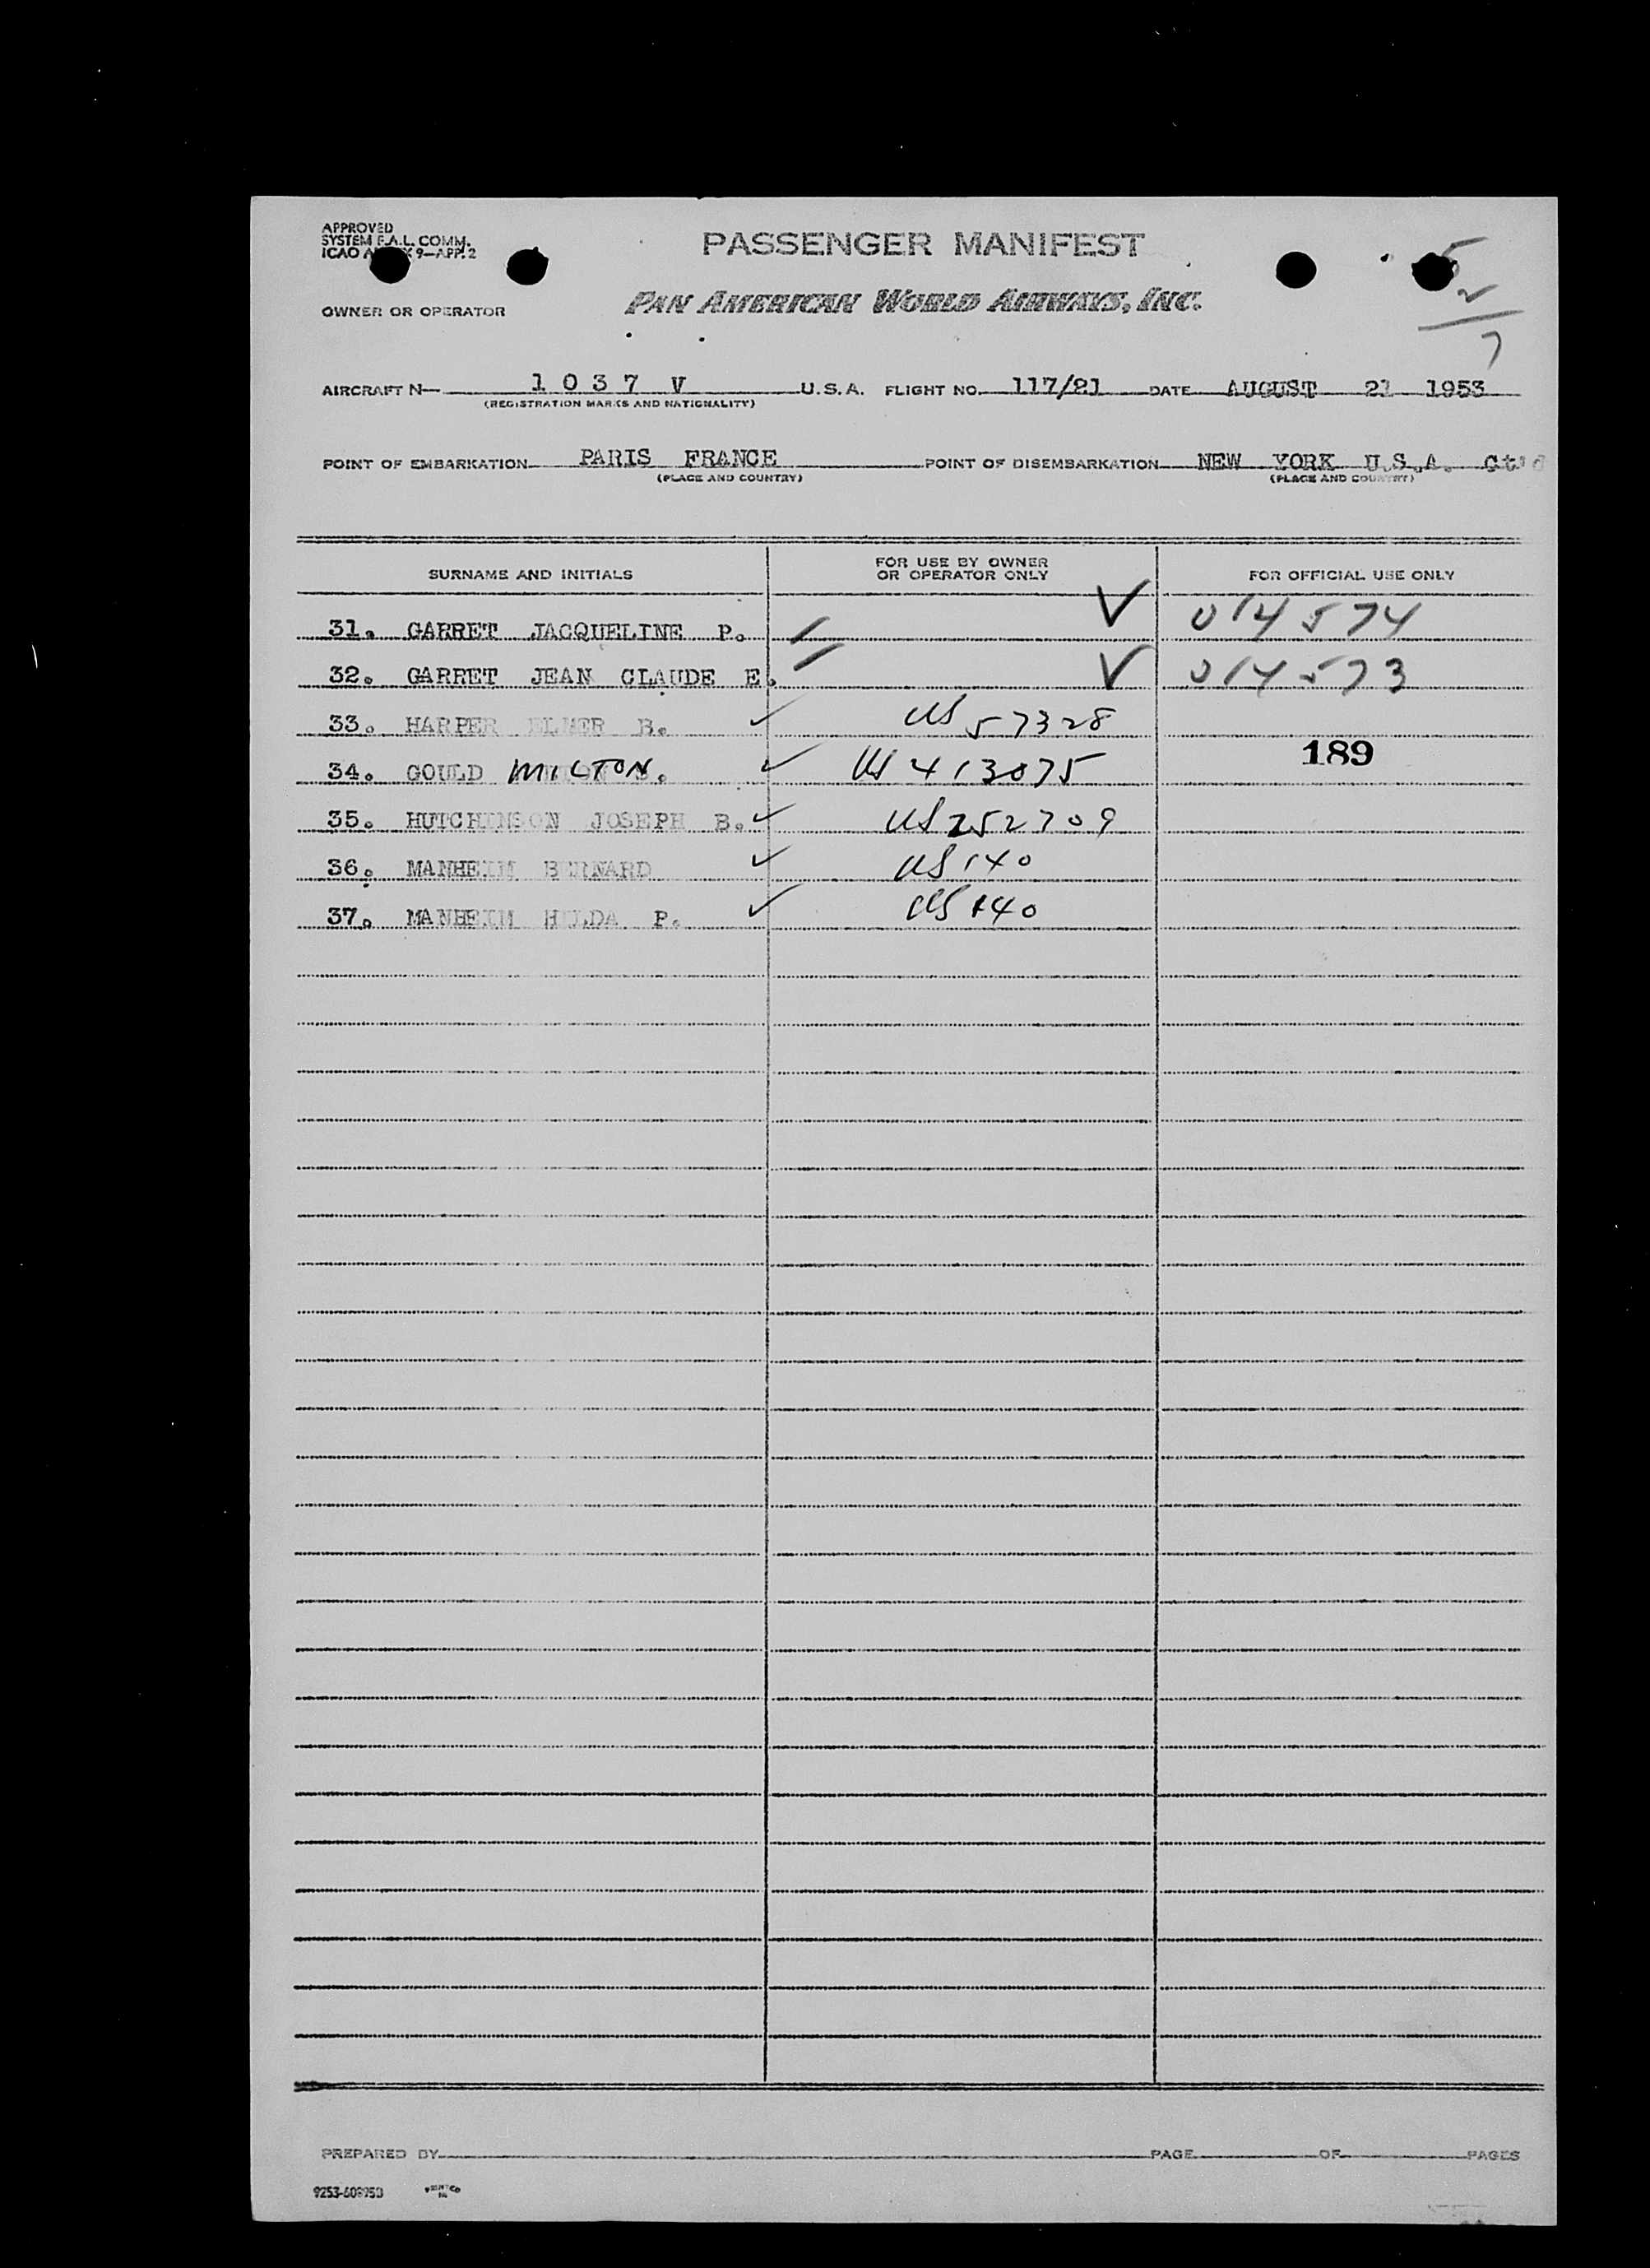 APPROVED
SYSTEM F.A.L. COMM.
ICAO 9-APP. 2
PASSENGER MANIFEST
5
2
7
OWNER OR OPERATOR PAN AMERICAN WORLD AIRWAYS, INC.
AIRCRAFT N- 1 0 3 7 V U.S.A. FLIGHT NO. 117/21 DATE AUGUST 21 1953
(REGISTRATION MARKS AND NATIONALITY)
POINT OF EMBARKATION PARIS FRANCE POINT OF DISEMBARKATION NEW YORK U.S.A.
(PLACE AND COUNTRY) (PLACE AND COUNTRY)
SURNAME AND INITIALS FOR USE BY OWNER OR OPERATOR ONLY FOR OFFICIAL USE ONLY
31. GARRET JACQUELINE P. 014574
32. GARRET JEAN CLAUDE E. 014573
33. HARPER ELMER B. US 57328
34. GOULD MILTON. US 413075 189
35. HUTCHINSON JOSEPH B. US 252709
36. MANHEIM BERNARD US 140
37. MANHEIM HILDA P. US 140
PREPARED BY PAGE OF PAGES